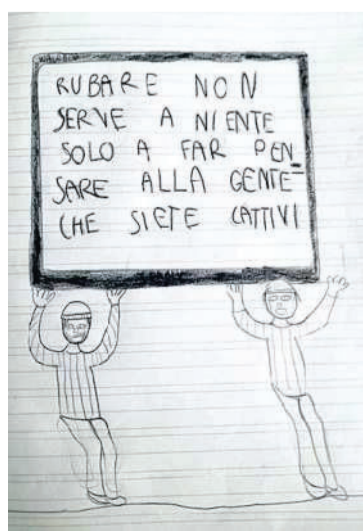 RUBARE NON
SERVE A NIENTE
SOLO A FAR PEN
SARE ALLA GENTE
CHE SIETE CATTIVI